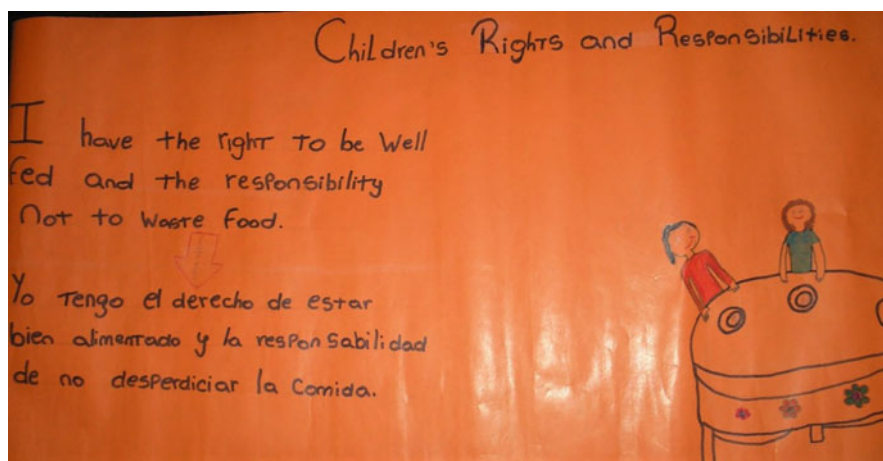 Children's Rights and Responsibilities.
I have the right to be well
fed and the responsibility
not to waste food.
Yo tengo el derecho de estar
bien alimentado y la responsabilidad
de no desperdiciar la comida.